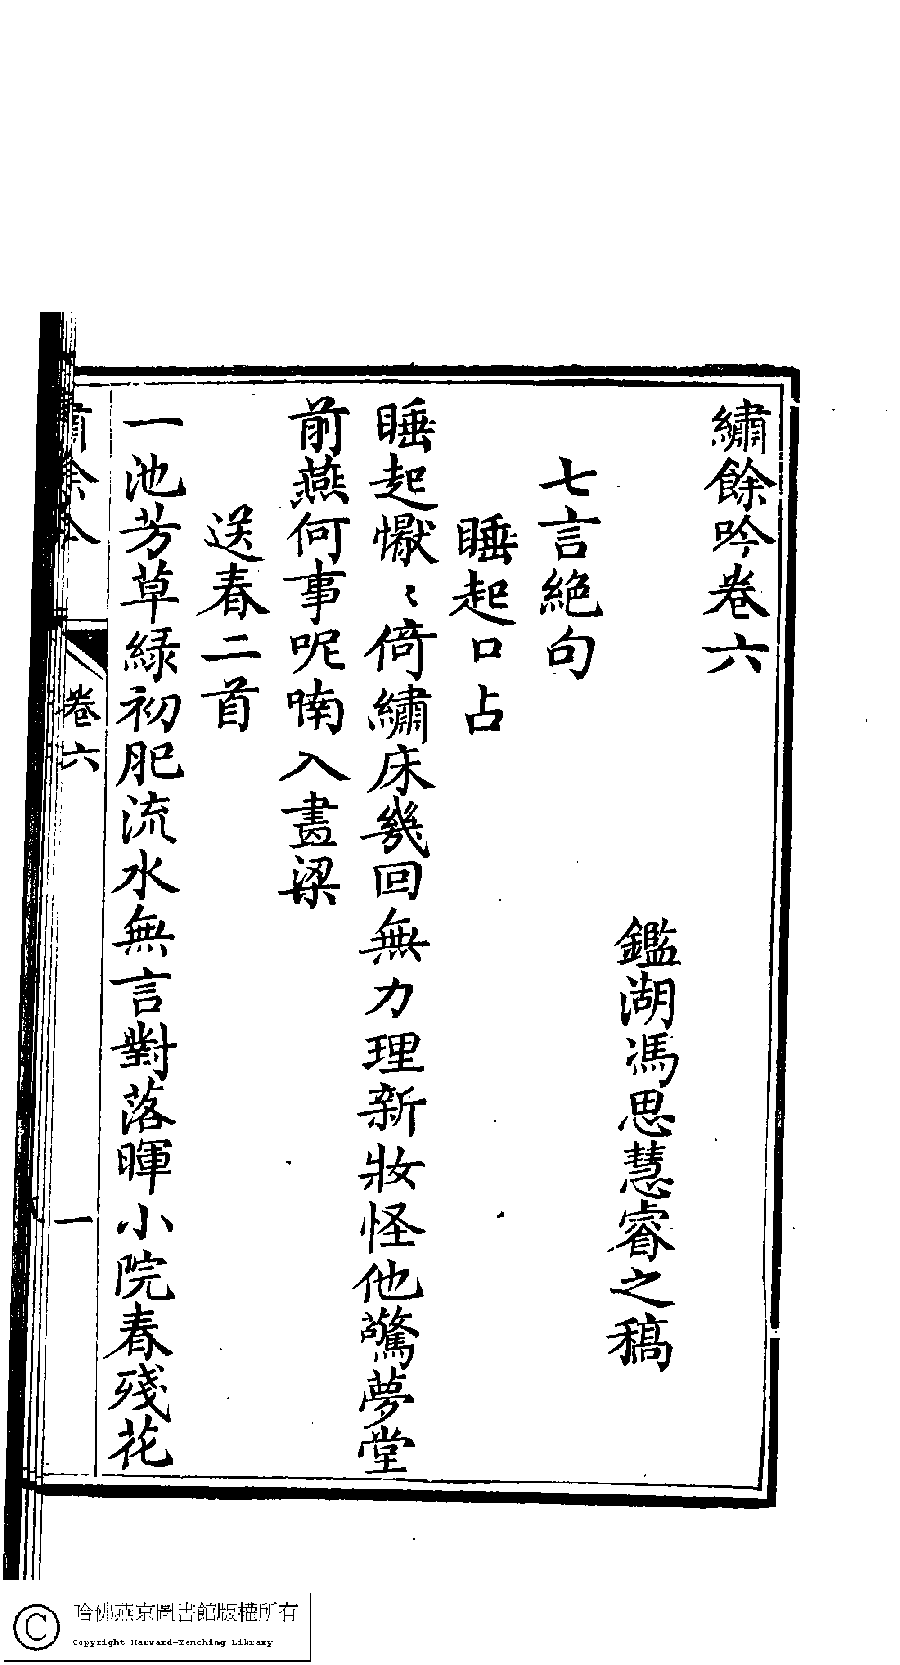 繡餘吟卷六
鑑湖馮思慧睿之稿
七言絕句
睡起口占
睡起懨〻倚繡床幾回無力理新妝怪他驚夢堂
前燕何事呢喃入畫梁
送春二首
一池芳草綠初肥流水無言對落暉小院春殘花
卷六
一
哈佛燕京圖書館版權所有
Copyright Harvard-Yenching Library